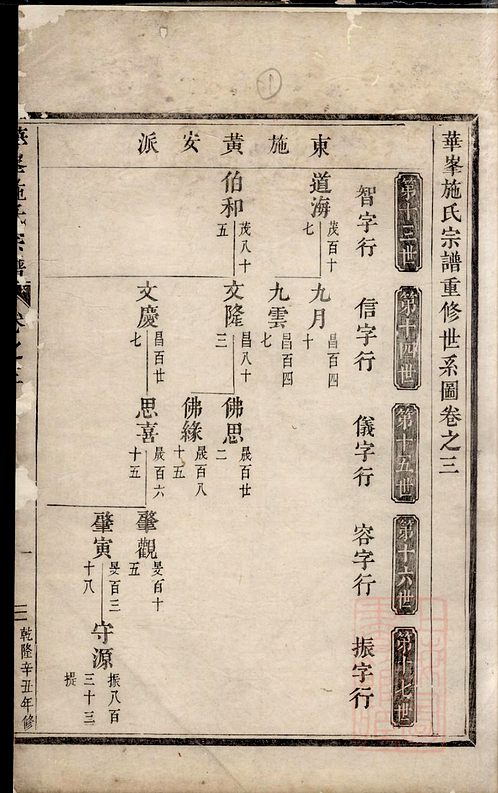 ①
華峯施氏宗譜重修世系圖卷之三
第十三世
智字行
第十四世
信字行
第十五世
儀字行
第十六世
容字行
第十七世
振字行
東施黃安派
道海
茂百十七
九月
昌百四十
九雲
昌百四七
伯和
茂八十五
文隆
昌八十三
佛思
晟百廿二
佛緣
晟百八十五
文慶
昌百廿七
思喜
晟百六十五
肇觀
旻百十五
肇寅
旻百三十八
守源
振八百三十三
提
華峯施氏宗譜
卷之三
一
三
乾隆辛丑年修